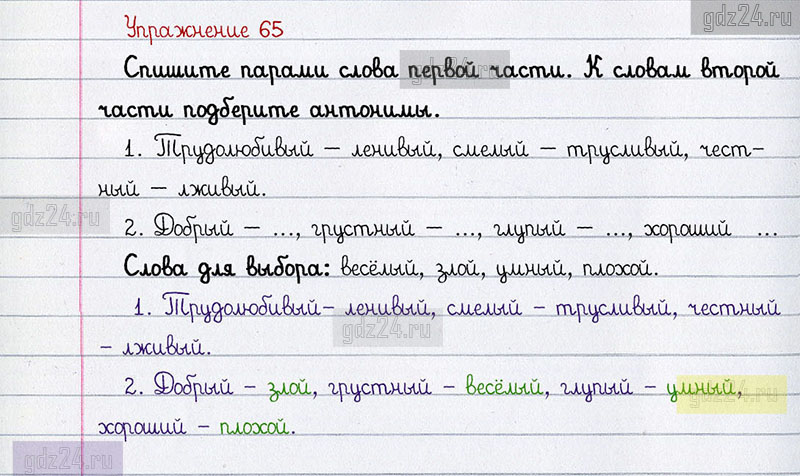 gdz24.ru
Упражнение 65
Спишите парами слова первой части. К словам второй
gdz24.ru
части подберите антонимы.
1. Трудолюбивый – ленивый, смелый – трусливый, чест-
ный – лживый.
gdz24.ru
2. Добрый – ..., грустный – ..., глупый – ..., хороший ...
Слова для выбора: весёлый, злой, умный, плохой.
1. Трудолюбивый- ленивый, смелый - трусливый, честный
gdz24.ru
- лживый.
2. Добрый - злой, грустный - весёлый, глупый - умный,
gdz24.ru
хороший - плохой.
gdz24.ru